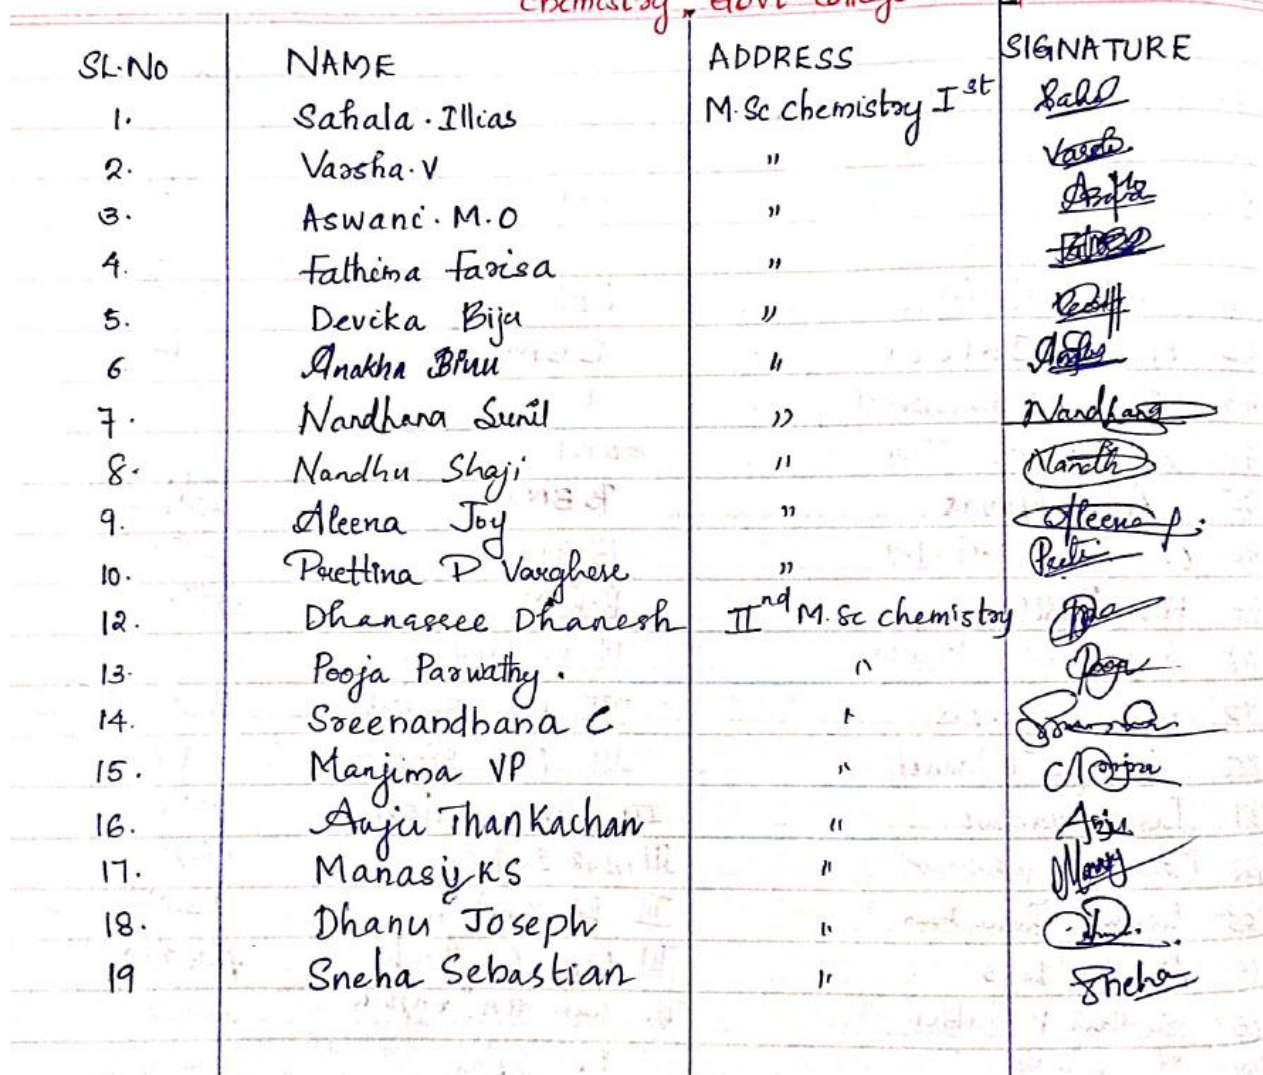 Chemistry, Govt College
SL.No NAME ADDRESS SIGNATURE
1. Sahala . Illias M.Sc Chemistry Ist Sahal
2. Varsha. V " Varsha
3. Aswani. M.O "
4. Fathima Farisa "
5. Devika Biju "
6 Anakha Binu "
7. Nandhana Sunil " Nandhana
8. Nandhu Shaji " Nandh
9. Aleena Joy " Aleena
10. Prettina P Varghese "
12. Dhanassee Dhanesh IInd M.Sc chemistry
13. Pooja Parwathy. " Pooja
14. Sreenandhana C "
15. Manjima VP "
16. Anju Thankachan " Anju
17. Manasy KS "
18. Dhanu Joseph "
19 Sneha Sebastian " Sneha